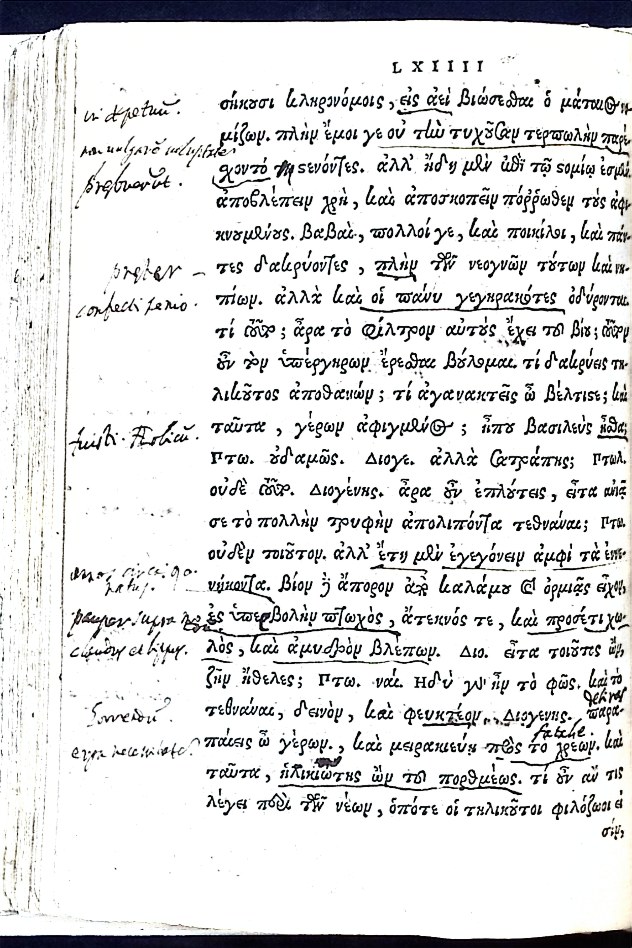 LXIIII
σήκουσι κληρονόμοις, εἰς ἀεὶ βιώσεσθαι ὁ μάταιος νο
in perpetuum.
μίζων. πλὴν ἔμοι γε οὐ τὴν τυχοῦσαν τερπωλὴν παρέ
non vulgarē voluptatē
χοντο στένοντες. ἀλλ' ἤδη μὲν ἐπὶ τῷ στομίῳ ἐσμέν.
prębuerūt.
ἀποβλέπειν χρὴ, καὶ ἀποσκοπεῖν πόῤῥωθεν τοὺς ἀφι
κνουμένους. βαβαὶ, πολλοί γε, καὶ ποικίλοι, καὶ πάν
τες δακρύοντες, πλὴν τῶν νεογνῶν τούτων καὶ νη
preter
πίων. ἀλλὰ καὶ οἱ πάνυ γεγηρακότες ὀδύρονται.
confecti senio.
τί οὖν; ἆρα τὸ φίλτρον αὐτοὺς ἔχει τοῦ βίου; τοῦτον
οὖν τὸν ὑπέργηρων ἔρεσθαι βούλομαι. τί δακρύεις τη
λικοῦτος ἀποθανών; τί ἀγανακτεῖς ὦ βέλτιστε; καὶ
ταῦτα, γέρων ἀφιγμένος; ἦπου βασιλεὺς ἦσθα;
fuisti.
Πτω. οὐδαμῶς. Διογε. ἀλλὰ σατράπης; Πτωχ.
οὐδὲ τοῦτο. Διογένης. ἆρα οὖν ἐπλούτεις, εἶτα ἀνιᾷ
σε τὸ πολλὴν τρυφὴν ἀπολιπόντα τεθνάναι; Πτω.
οὐδὲν τοιοῦτον. ἀλλ' ἔτη μὲν ἐγεγόνειν ἀμφὶ τὰ ἐνε-
νήκοντα. βίον δὲ ἄπορον ἀπὸ καλάμου καὶ ὁρμιᾶς εἶχον,
natus.
ἐς ὑπερβολὴν πτωχὸς, ἄτεκνός τε, καὶ προσέτι χω-
pauper supra
λὸς, καὶ ἀμυδρὸν βλέπων. Διο. εἶτα τοιοῦτος ὢν,
claudus
ζῆν ἤθελες; Πτω. ναί. ἡδὺ γὰρ ἦν τὸ φῶς. καὶ τὸ
τεθνάναι, δεινὸν, καὶ φευκτέον. Διογένης. παρα-
παίεις ὦ γέρων, καὶ μειρακιεύῃ πρὸς τὸ χρεών. καὶ
fatale.
erga necessitatē.
ταῦτα, ἡλικιώτης ὢν τοῦ πορθμέως. τί οὖν ἄν τις
λέγει περὶ τῶν νέων, ὁπότε οἱ τηλικοῦτοι φιλόζωοι εἰ
σίν,